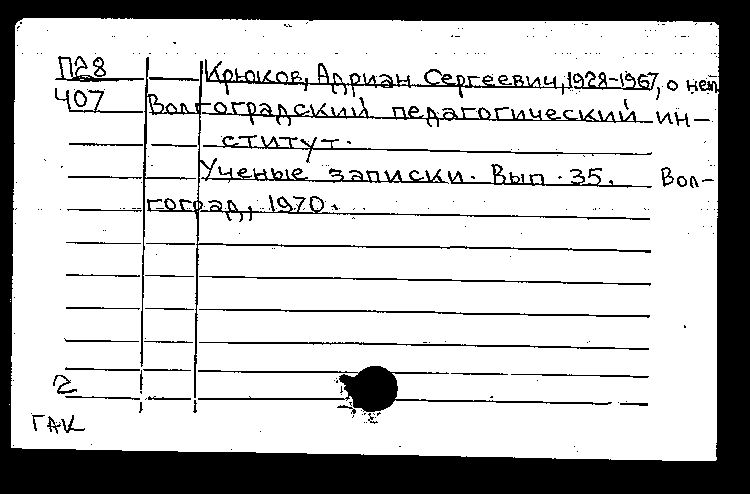 П28 Крюков, Адриан Сергеевич, 1928-1967, о нем
407 Волгоградский педагогический ин-
ститут.
Ученые записки. Вып. 35. Вол-
гоград, 1970.
2
ГАК